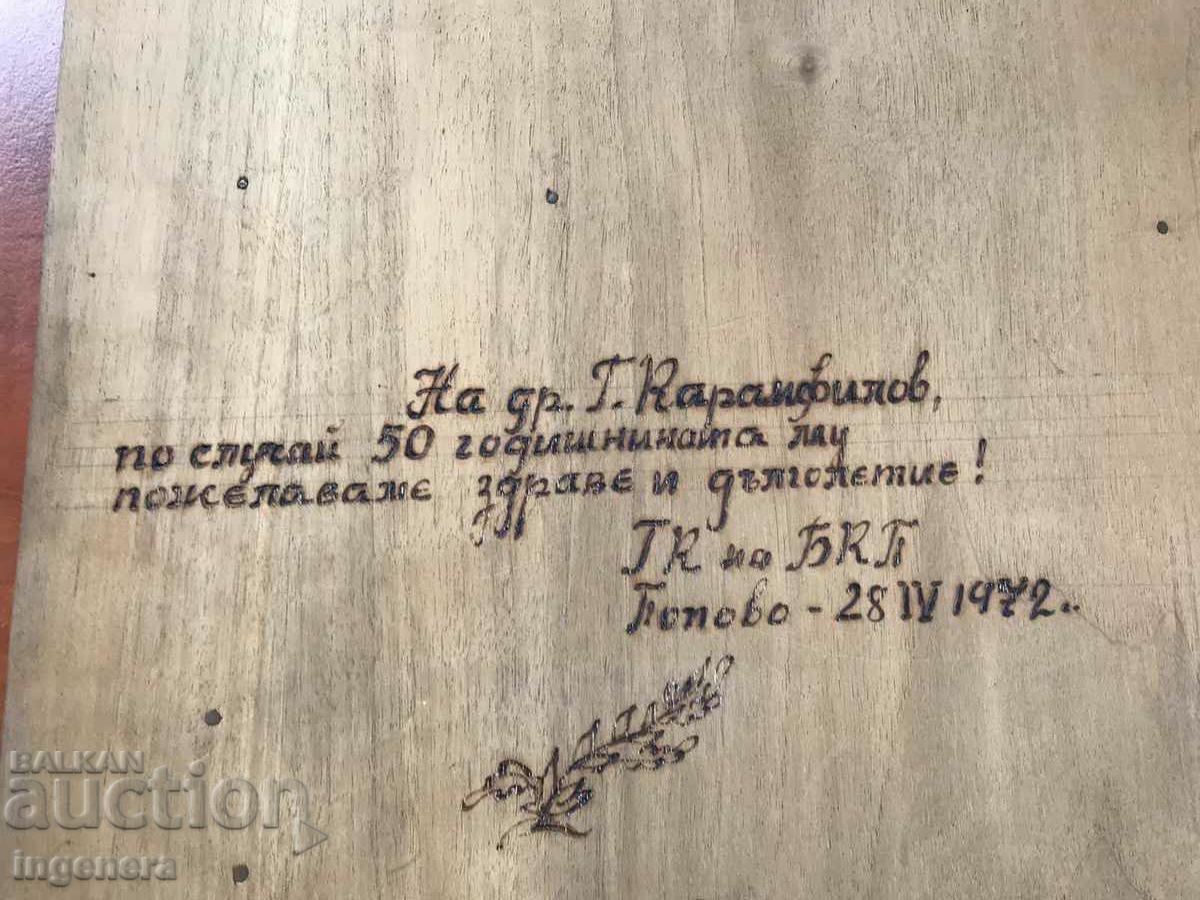 На др. Г. Карамфилов,
по случай 50 годишнината му
пожелаваме здраве и дълголетие!
ГК на БКП
Попово - 28 IV 1972..
BALKAN
auction
ingenera